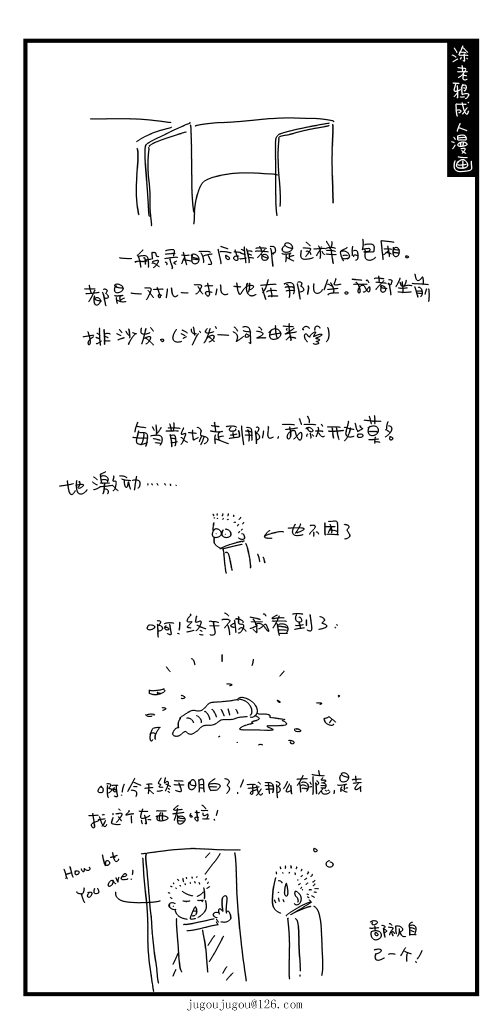 涂老鸦成人漫画
一般录相厅后排都是这样的包厢。
都是一对儿一对儿地在那儿坐。我都坐前
排沙发。(沙发一词之由来
每当散场走到那儿,我就开始莫名
地激动……
←也不困了
啊!终于被我看到了.
啊!今天终于明白了!我那么有瘾,是去
找这个东西看啦!
How bt
You are!
鄙视自
己一个!
jugoujugou@126.com